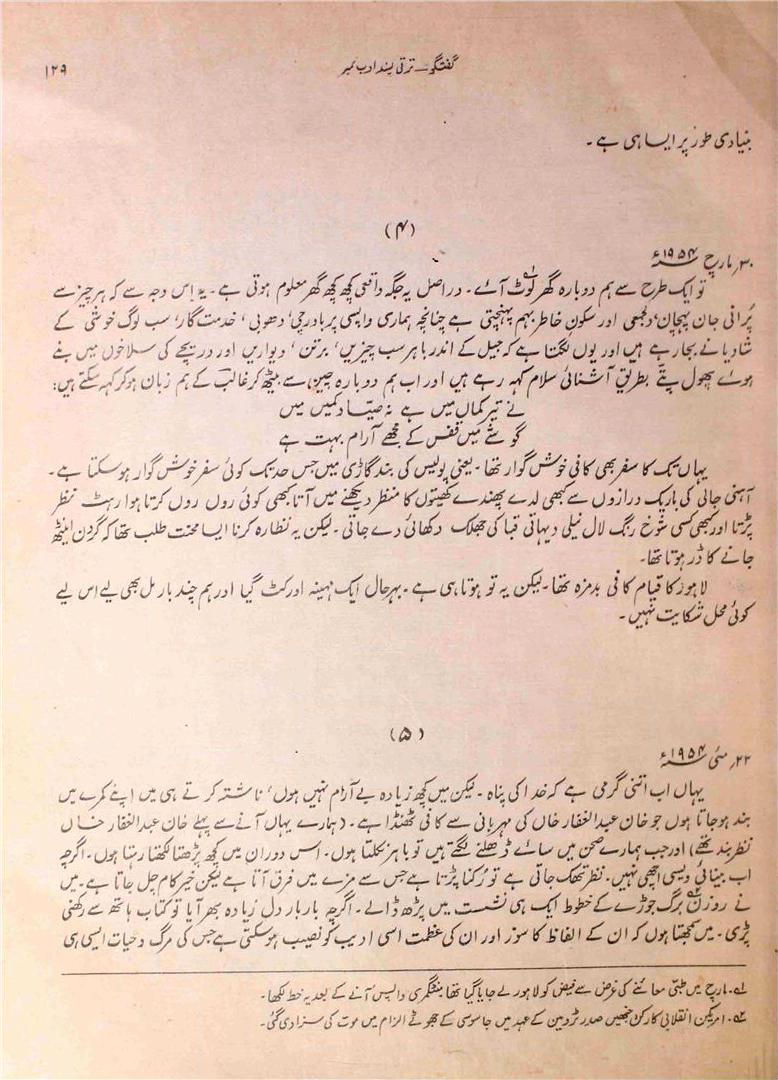 گفتگو — ترقی پسند ادب نمبر
۱۲۹
بنیادی طور پر ایسا ہی ہے۔
(۴)
۳۰؍ مارچ ۱۹۵۴ء
تو ایک طرح سے ہم دوبارہ گھر لوٹ آئے۱۔ دراصل یہ جگہ واقعی کچھ کچھ گھر معلوم ہوتی ہے۔ یہ اِس وجہ سے کہ ہر چیز سے
پُرانی جان پہچان، دلجمعی اور سکونِ خاطر بہم پہنچتی ہے چنانچہ ہماری واپسی پر باورچی، دھوبی، خدمت گار، سب لوگ خوشی کے
شادیانے بجا رہے ہیں اور یوں لگتا ہے کہ جیل کے اندر باہر سب چیزیں، برتن، دیواریں اور دریچے کی سلاخوں میں بنے
ہوئے پھول پتے بطریقِ آشنائی سلام کہہ رہے ہیں اور اب ہم دوبارہ چین سے بیٹھ کر غالب کے ہم زبان ہو کر کہہ سکتے ہیں:
نے تیر کماں میں ہے نہ صیّاد کمیں میں
گوشے میں قفس کے مجھے آرام بہت ہے
یہاں تک کا سفر بھی کافی خوش گوار تھا۔ یعنی پولیس کی بند گاڑی میں جس حد تک کوئی سفر خوش گوار ہو سکتا ہے۔
آہنی جالی کی باریک درازوں سے کبھی لدے پھندے کھیتوں کا منظر دیکھنے میں آتا کبھی کوئی روں روں کرتا ہوا رہٹ نظر
پڑتا اور کبھی کسی شوخ رنگ لال نیلی دیہاتی قبا کی جھلک دکھائی دے جاتی۔ لیکن یہ نظارہ کرنا ایسا محنت طلب تھا کہ گردن اینٹھ
جانے کا ڈر ہوتا تھا۔
لاہور کا قیام کافی بدمزہ تھا۔ لیکن یہ تو ہوتا ہی ہے۔ بہرحال ایک مہینہ اور کٹ گیا اور ہم چند بار مل بھی لیے اس لیے
کوئی محل شکایت نہیں۔
(۵)
۲۲؍ مئی ۱۹۵۴ء
یہاں اب اتنی گرمی ہے کہ خدا کی پناہ۔ لیکن میں کچھ زیادہ بے آرام نہیں ہوں، ناشتہ کرتے ہی میں اپنے کمرے میں
بند ہو جاتا ہوں جو خان عبدالغفار خاں کی مہربانی سے کافی ٹھنڈا ہے۔ (ہمارے یہاں آنے سے پہلے خان عبدالغفار خاں
نظر بند تھے) اور جب ہمارے صحن میں سائے ڈھلنے لگتے ہیں تو باہر نکلتا ہوں۔ اس دوران میں کچھ پڑھتا لکھتا رہتا ہوں۔ اگرچہ
اب بینائی ویسی اچھی نہیں۔ نظر تھک جاتی ہے تو رُکنا پڑتا ہے جس سے مزے میں فرق آتا ہے لیکن خیر کام چل جاتا ہے۔ میں
نے روزن برگ۲ جوڑے کے خطوط ایک ہی نشست میں پڑھ ڈالے۔ اگرچہ بار بار دل زیادہ بھر آیا تو کتاب ہاتھ سے رکھنی
پڑی۔ میں سمجھتا ہوں کہ ان کے الفاظ کا سوز اور ان کی عظمت اسی ادیب کو نصیب ہو سکتی ہے جس کی مرگ و حیات ایسی ہی
۱۔ مارچ میں طبّی معائنے کی غرض سے فیض کو لاہور لے جایا گیا تھا منٹگمری واپس آنے کے بعد یہ خط لکھا۔
۲۔ امریکن انقلابی کارکن جنھیں صدر ٹرومین کے عہد میں جاسوسی کے جھوٹے الزام میں موت کی سزا دی گئی۔